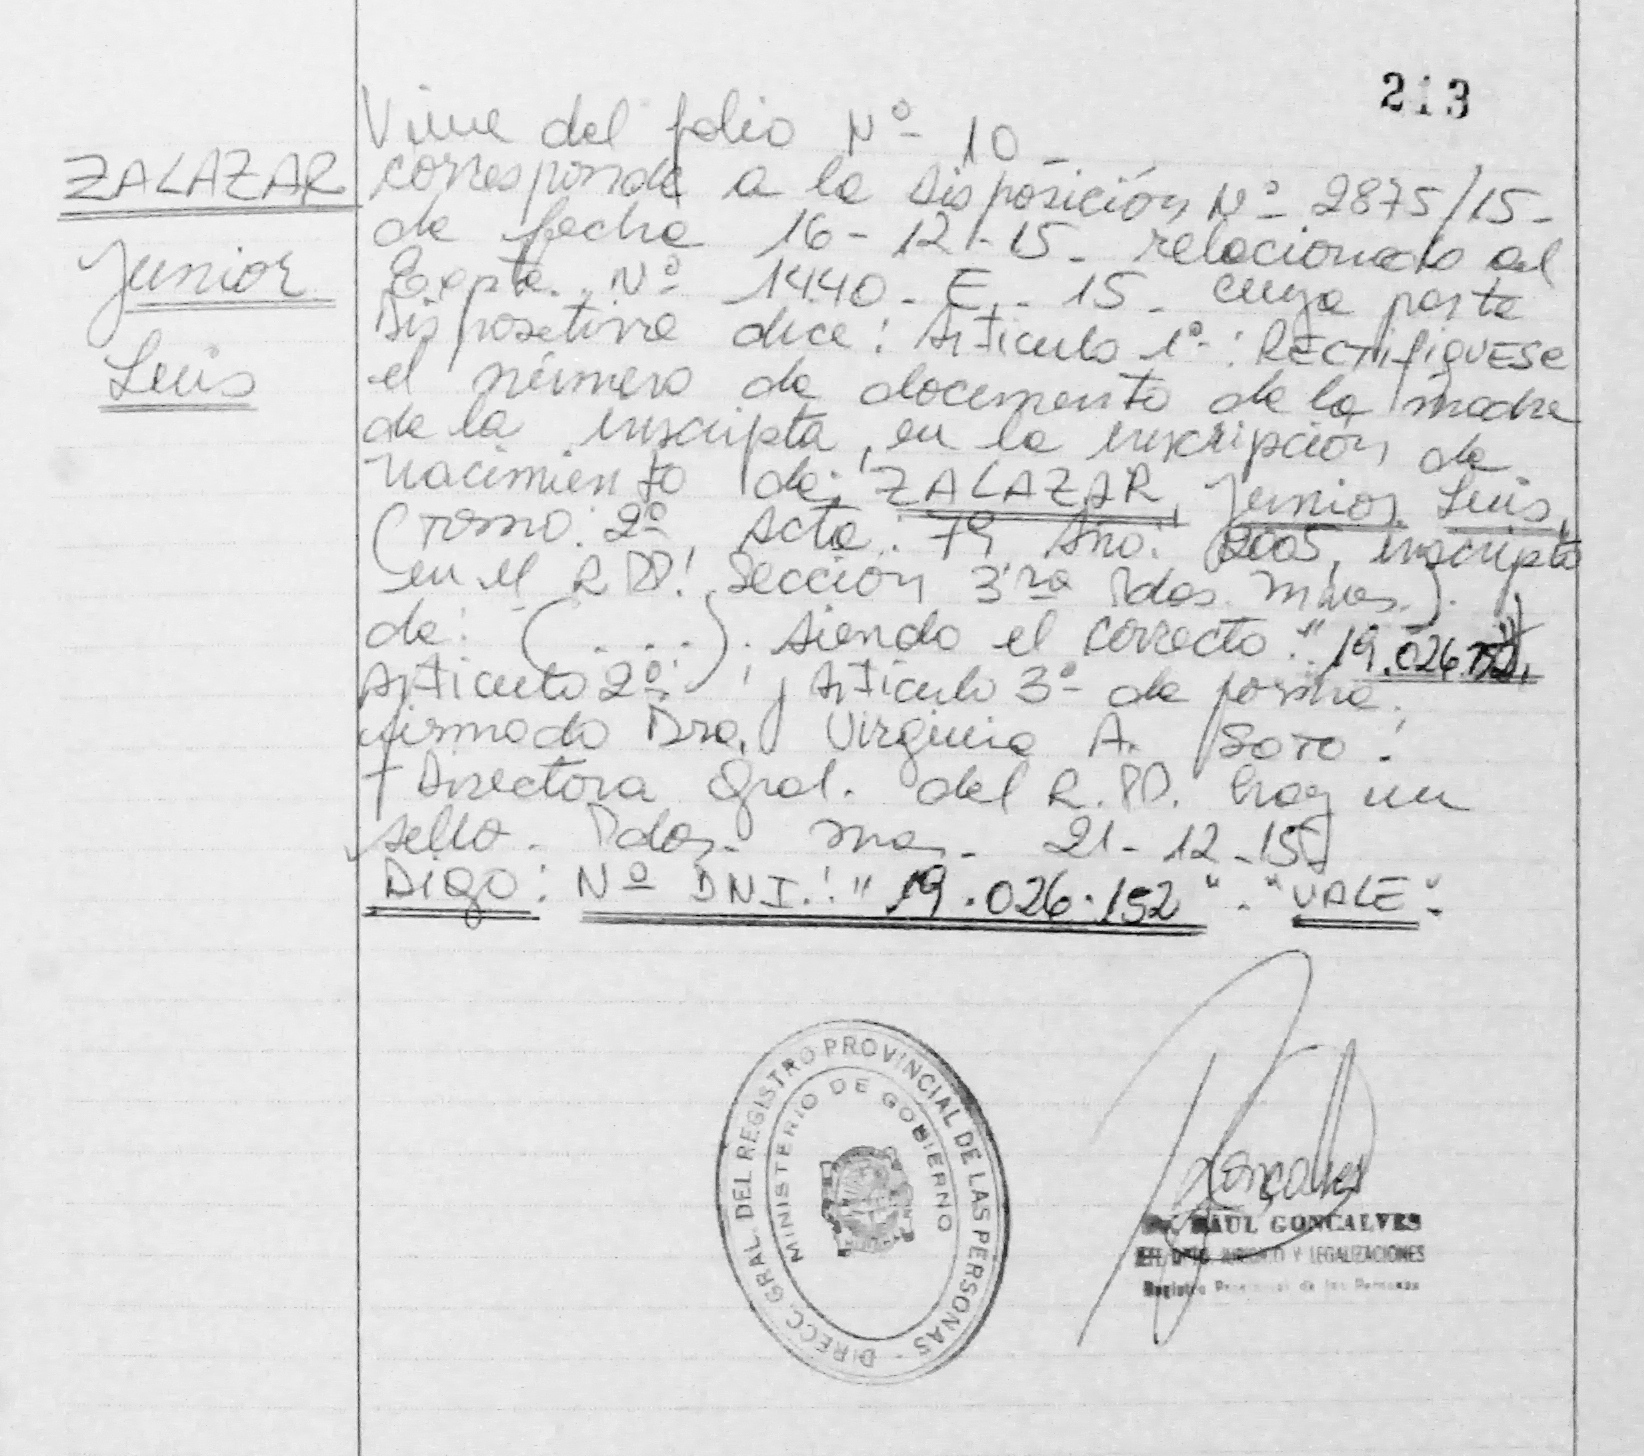 213
ZALAZAR
Junior
Luis
Viene del folio Nº 10 -
corresponde a la disposición Nº 2875/15-
de fecha 16-12-15- relacionado al
Expte. Nº 1440-E-15- cuya parte
Dispositiva dice: Articulo 1º: RECTIFIQUESE
el número de documento de la madre
de la inscripta, en la inscripción de
nacimiento de: ZALAZAR, Junior Luis,
(Tomo: 2º Acta: 79 Año: 2005, inscripto
en el R.PP. Sección 3ra Pdas. Mnes.).
de: (....). siendo el correcto: "19.026.
Articulo 2º: Articulo 3º de forma.
firmado Dra. Virginia A. Soto:
Directora Gral. del R.PP. hay un
sello. Pdas. Mnes. 21-12-15
Digo: Nº DNI: "19.026.152". "VALE".
DIRECC. GRAL. DEL REGISTRO PROVINCIAL DE LAS PERSONAS -
MINISTERIO DE GOBIERNO
Goncalves
RAUL GONCALVES
JURIDICO Y LEGALIZACIONES
Registro Provincial de las Personas